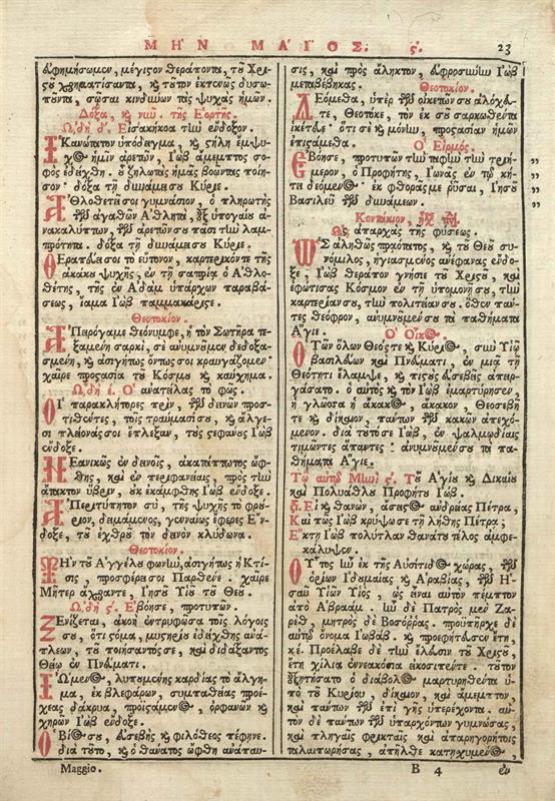 ΜΗΝ ΜΑΪΟΣ. ς. 23
ἀφημήσωμεν, μέγιστον θεράποντα, τοῦ Χρι-
στοῦ χρηματίσαντα, καὶ τοῦτον ἐκτενῶς δυσω-
ποῦντα, σῶσαι κινδύνων τὰς ψυχὰς ἡμῶν.
Δόξα, καὶ νῦν. τῆς Ἑορτῆς.
Ὠδὴ δ. Εἰσακήκοα τὴν ἔνδοξον.
ἱκανώτατον ὑπόδειγμα, καὶ στήλη ἔμψυ-
χος ἡμῖν ἀρετῶν, Ἰὼβ ἄμεμπτος σο-
φὸς ἐδείχθη. ὃ ζηλώσας ἡμᾶς βοῶντας ποίη-
σον· δόξα τῇ δυνάμει σου Κύριε.
Ἀθλοθετῆσαι γυμνάσιον, ὁ πληρωτὴς
τῶν ἀγαθῶν
ἀνακαλύπτων, τῶν ἀρετῶν σου πᾶσι τὴν λαμ-
πρότητα. δόξα τῇ δυνάμει σου Κύριε.
Ὁ
ἀκάκου ψυχῆς, ἐν τῇ σαπρίᾳ ὁ Ἀθλο-
θέτης, τῆς ἐν Ἀδὰμ ὑπάρχων παραβά-
σεως, ἴαμα Ἰὼβ παμμακάριστε.
Θεοτοκίον.
Ἀπειρόγαμε Θεόνυμφε, ἡ τὸν Σωτῆρα τε-
ξαμένη σαρκὶ, σὲ ἀνυμνοῦμεν δεδοξα-
σμένη, καὶ ἀσιγήτως ὄντως σοι κραυγάζομεν·
χαῖρε προστασία τοῦ Κόσμου καὶ καύχημα.
Ὠδὴ ε. Ὁ ἀνατείλας τὸ φῶς.
Οἱ παρακλήτορες πρὶν, τῶν δεινῶν προσ-
τιθέντες, τοῖς τραύμασί σου, καὶ ἄλγε-
σι πλείονάς σοι ἔπλεξαν, τοὺς στεφάνους Ἰὼβ
ἔνδοξε.
Νεανικῶς ἐν δεινοῖς, ἀκαταπτωτος ὤφ-
θης, καὶ ἐν περιφανείαις, πρὸς τὴν
ἄπακτον ὕβριν, οὐκ ἐκάμφθης Ἰὼβ ἔνδοξε.
Ἀπερίτρεπτόν σου, τῆς ψυχῆς τὸ φρού-
ριον, δειμάμενος, γενναίως ἔφερες Ἔν-
δοξε, τοῦ ἐχθροῦ τὸν δεινὸν κλύδωνα.
Θεοτοκίον.
Τὴν τοῦ Ἀγγέλου φωνὴν, ἀσιγήτως ἡ Κτί-
σις, προσφέρει σοι Παρθένε· χαῖρε
Μῆτερ ἄχραντε, Ἰησοῦ Υἱοῦ τοῦ Θεοῦ.
Ὠδὴ ς. Ἐβόησε, προτυπῶν.
Ξενίζεται, ἀκοὴ ἐντρυφῶσα τοῖς λόγοις
σου, ὅτι σῶμα, μυστήριον ἐδείχθης ἀνά-
πλεων, τοῦ ποιήσαντός σε, καὶ διδάξαντος
Θείῳ ἐν Πνεύματι.
Ἰώμενος, λυπουμένης καρδίας τὸ ἄλγη-
μα, ἐκ βλεφάρων, συμπαθείας προεί-
χεας δάκρυα, προϊστάμενος, ὀρφανῶν καὶ
χηρῶν Ἰὼβ ἔνδοξε.
Ὁ Βίος σου, εὐσεβὴς καὶ φιλόθεος πέφηνε.
διὰ τοῦτο, καὶ ὁ θάνατος ὤφθη ἀνάπαυ-
Maggio.
σις, καὶ πρὸς ἄληκτον, εὐφροσύνην Ἰὼβ
μεταβέβηκας. Θεοτοκίον.
Δεόμεθα, ὑπὲρ τῶν οἰκετῶν σου δυσώπη-
τε, Θεοτόκε, τὸν ἐκ σοῦ σαρκωθέντα
ἱκέτευε· ὅτι σὲ καὶ μόνην, προστασίαν ἡμῶν
ἐπιστάμεθα. Ὁ Εἱρμός.
Ἐβόησε, προτυπῶν τὴν ταφὴν τὴν τριή-
μερον, ὁ Προφήτης, Ἰωνᾶς ἐν τῷ κή-
τει δεόμενος· ἐκ φθορᾶς με ῥῦσαι, Ἰησοῦ
Βασιλεῦ τῶν δυνάμεων.
Κοντάκιον,
Ὡς ἀπαρχὰς τῆς φύσεως.
Ὡς ἀληθὴς πραότατος, καὶ τοῦ Θεοῦ συ-
νόμιλος, ἡγιασμένος ἀνεφάνης ἔνδο-
ξε, Ἰὼβ Θεράπον γνήσιε τοῦ Χριστοῦ, καὶ
ἐφώτισας Κόσμον ἐν τῇ ὑπομονῇ σου, τὴν
καρτερίαν σου, τὴν πολιτείαν σου. ὅθεν πάν-
τες Θεόφρον, ἀνυμνοῦμέν σου τὰ παθήματα
Ἅγιε. Ὁ Οἶκος.
Ὁ τῶν ὅλων Θεός τε καὶ Κύριος, σὺν Υἱῷ
βασιλεύων καὶ Πνεύματι, ἐν μιᾷ τῇ
Θεότητι ἔλαμψε, καὶ τοὺς ἀσεβεῖς ἀπειρ-
γάσατο. ὁ αὐτὸς καὶ τὸν Ἰὼβ ἐμαρτύρησεν,
ἡ γλῶσσα ἡ ἄκακος, ἄκακον, Θεοσεβῆ
τε καὶ δίκαιον, πάντων τῶν κακῶν ἀπεχό-
μενον. διὰ τοῦτό σε Ἰὼβ, ἐν ψαλμῳδίαις
τιμῶντες ἅπαντες· ἀνυμνοῦμέν σου τὰ πα-
θήματα Ἅγιε.
Τῷ αὐτῷ Μηνὶ ς. Τοῦ Ἁγίου καὶ Δικαίου
καὶ Πολυάθλου Προφήτου Ἰώβ.
Στ. Εἰ καὶ θανὼν, ἄσειστος ἀνδρείας Πέτρα,
Καί πως Ἰὼβ κρύψωσε τῇ λήθης Πέτρᾳ;
Ἕκτῃ Ἰὼβ πολύτλαν θανάτου τέλος ἀμφε-
κάλυψεν.
Οὗτος ἦν ἐκ τῆς Αὐσίτιδος χώρας, τῶν
ὁρίων Ἰδουμαίας καὶ Ἀραβίας, τῶν Ἡ-
σαῦ Υἱῶν Υἱὸς, ὡς εἶναι αὐτὸν πέμπτον
ἀπὸ Ἀβραάμ. ἦν δὲ Πατρὸς μὲν Ζα-
ρὲθ, μητρὸς δὲ Βοσόρρας. προϋπῆρχε δὲ
αὐτῷ ὄνομα Ἰωβάβ. καὶ προεφήτευσεν ἔτη,
κε. Προέλαβε δὲ τὴν ἔλευσιν τοῦ Χριστοῦ,
ἔτη χίλια ἐννεακόσια εἰκοσιπέντε. τοῦτον
ἐξῃτήσατο ὁ διάβολος μαρτυρηθέντα ὑ-
πὸ τοῦ Κυρίου, δίκαιον, καὶ ἄμεμπτον,
καὶ πάντων τῶν ἐπὶ γῆς ὑπερέχοντα. αὐ-
τὸν δὲ πάντων τῶν ὑπαρχόντων γυμνώσας,
καὶ πληγαῖς φρικταῖς καὶ ἀπαρηγορήτοις
ταλαιπωρήσας, ἀπῆλθε κατῃσχυμένος,
B 4 ἐν